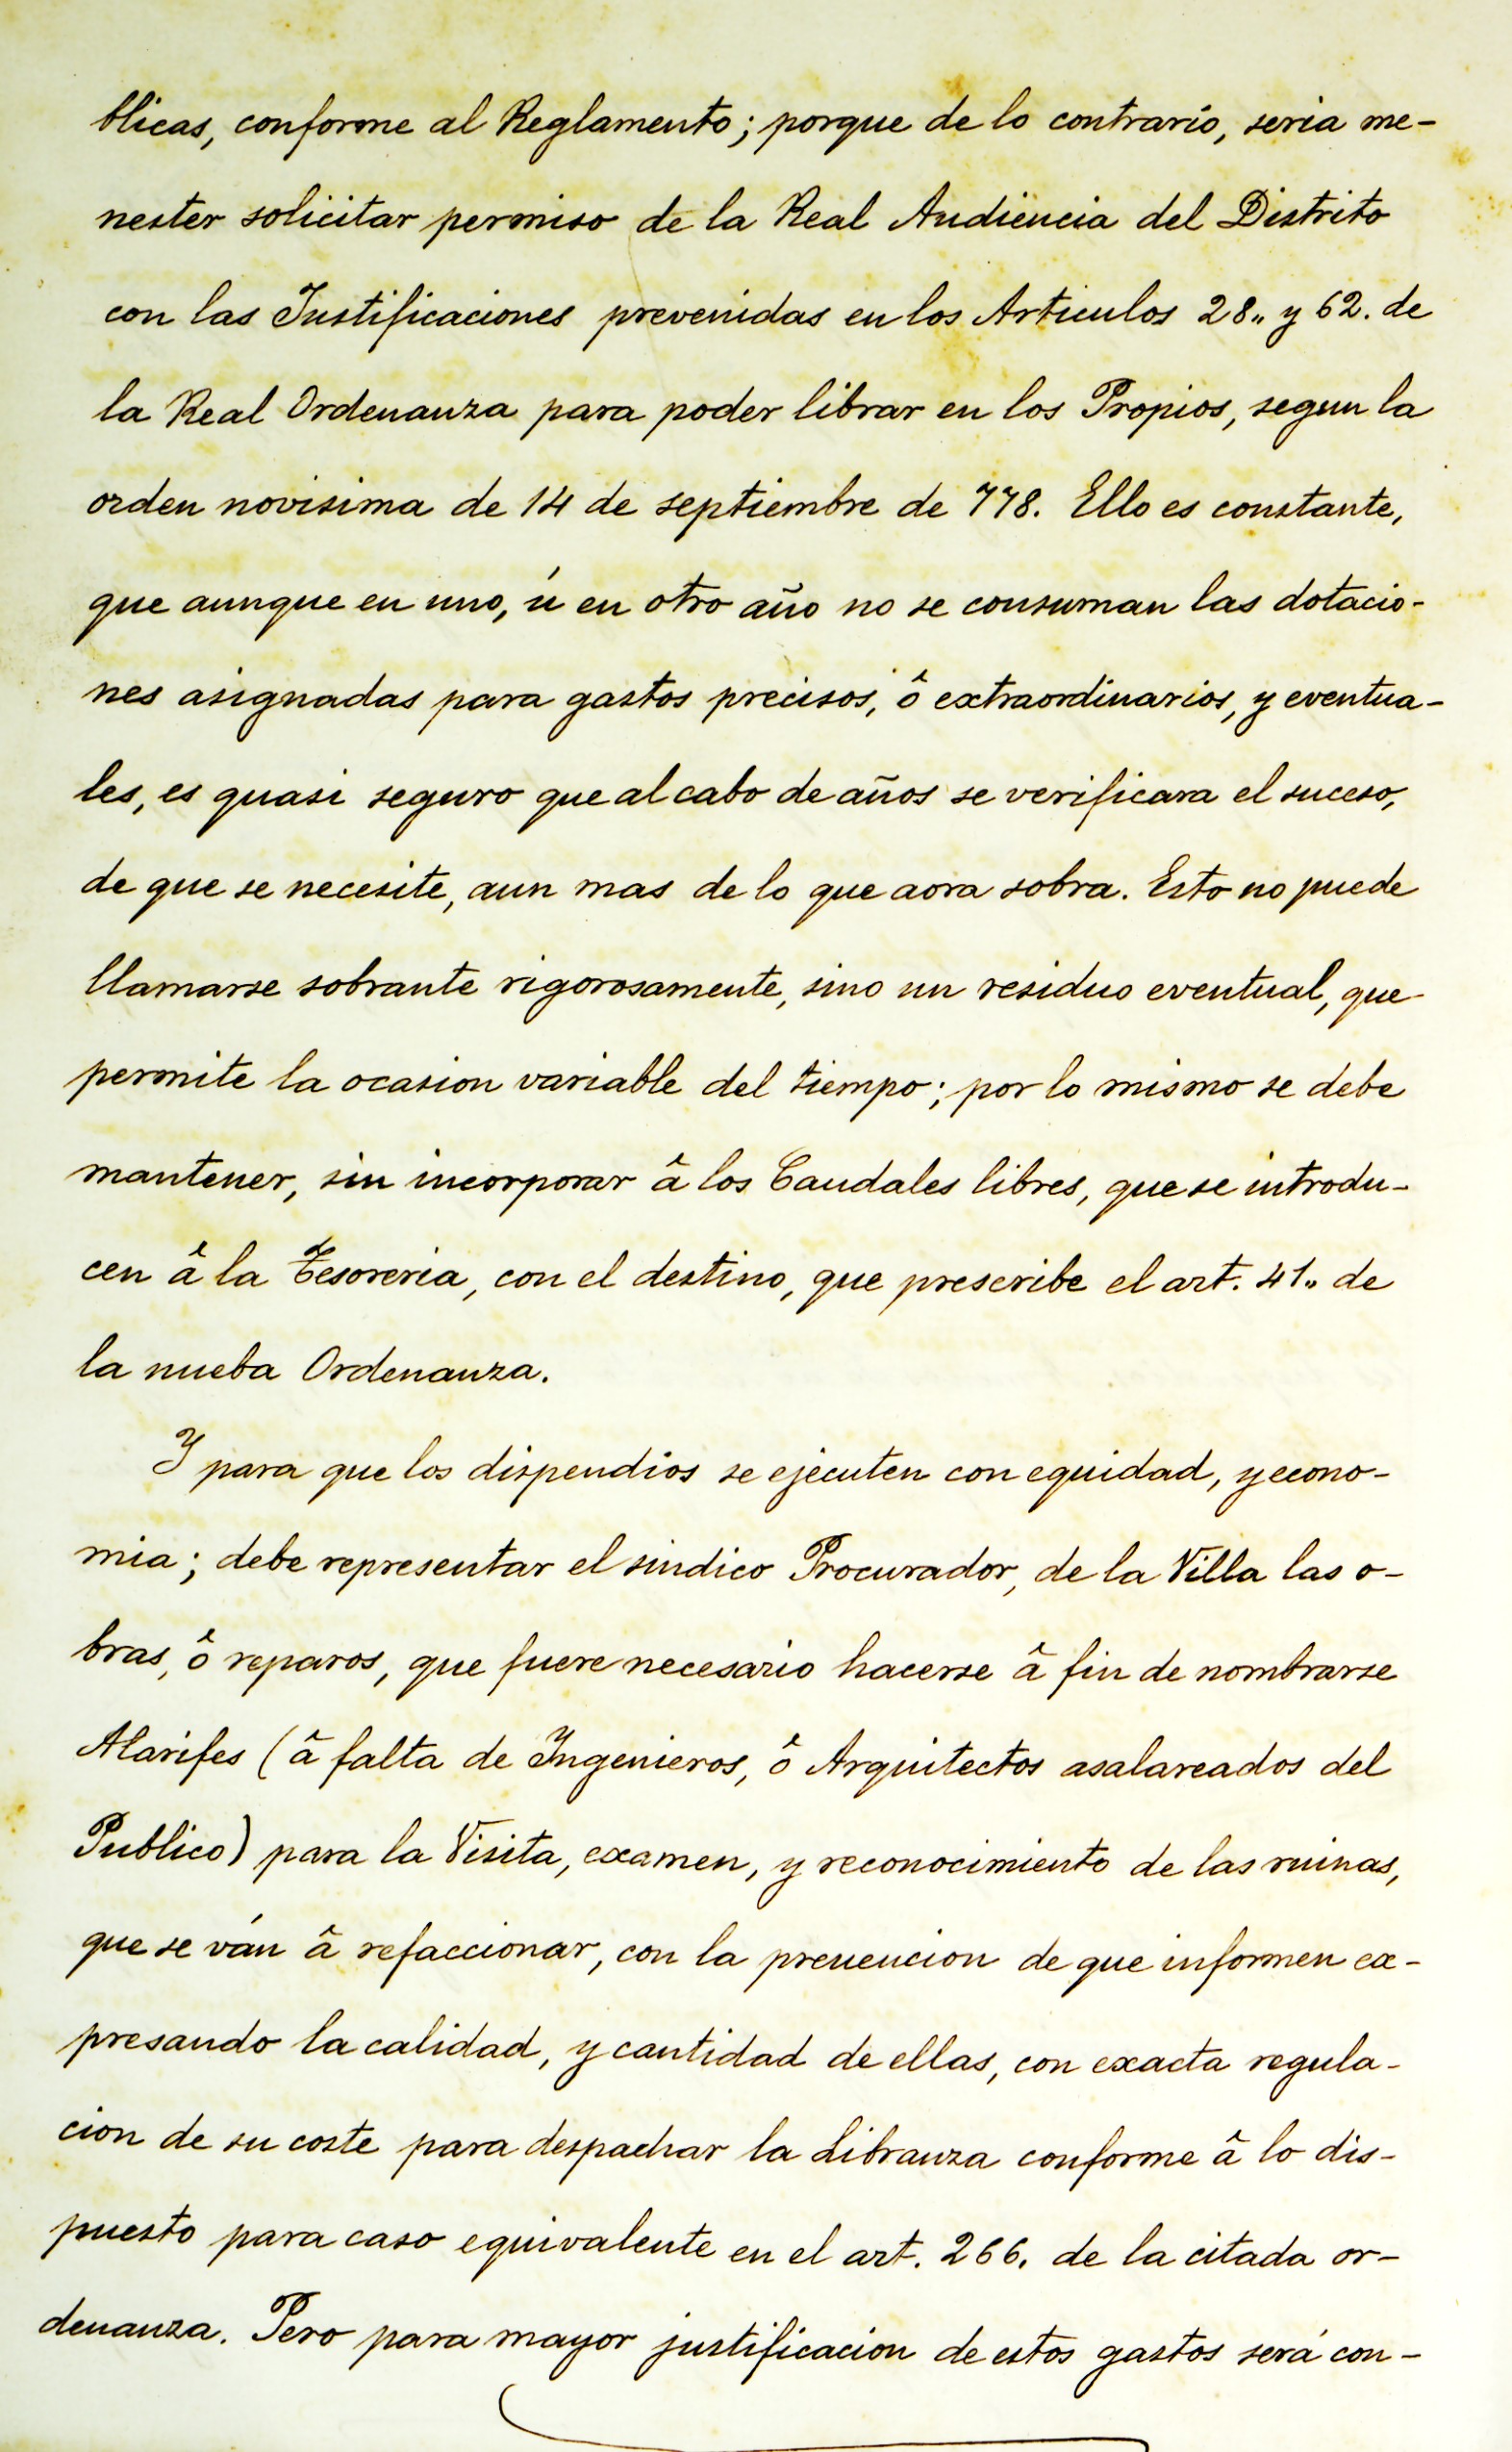 blicas, conforme al Reglamento; porque de lo contrario, seria me-
nester solicitar permiso de la Real Audiencia del Distrito
con las Justificaciones prevenidas en los Articulos 28,, y 62. de
la Real Ordenanza para poder librar en los Propios, segun la
orden novisima de 14 de septiembre de 778. Ello es constante,
que aunque en uno, ú en otro año no se consuman las dotacio-
nes asignadas para gastos precisos, ô extraordinarios, y eventua-
les, es quasi seguro que al cabo de años se verificara el suceso,
de que se necesite, aun mas de lo que aora sobra. Esto no puede
llamarse sobrante rigorosamente, sino un residuo eventual, que
permite la ocasion variable del tiempo; por lo mismo se debe
mantener, sin incorporar â los Caudales libres, que se introdu-
cen â la Tesoreria, con el destino, que prescribe el art. 41,, de
la nueba Ordenanza.
Y para que los dispendios se ejecuten con equidad, y econo-
mia; debe representar el sindico Procurador, de la Villa las o-
bras, ô reparos, que fuere necesario hacerse â fin de nombrarse
Alarifes (â falta de Ingenieros, ô Arquitectos asalareados del
Publico) para la Visita, examen, y reconocimiento de las ruinas,
que se ván â refaccionar, con la prevencion de que informen ex-
presando la calidad, y cantidad de ellas, con exacta regula-
cion de su coste para despachar la Libranza conforme â lo dis-
puesto para caso equivalente en el art. 266. de la citada or-
denanza. Pero para mayor justificacion de estos gastos será con-